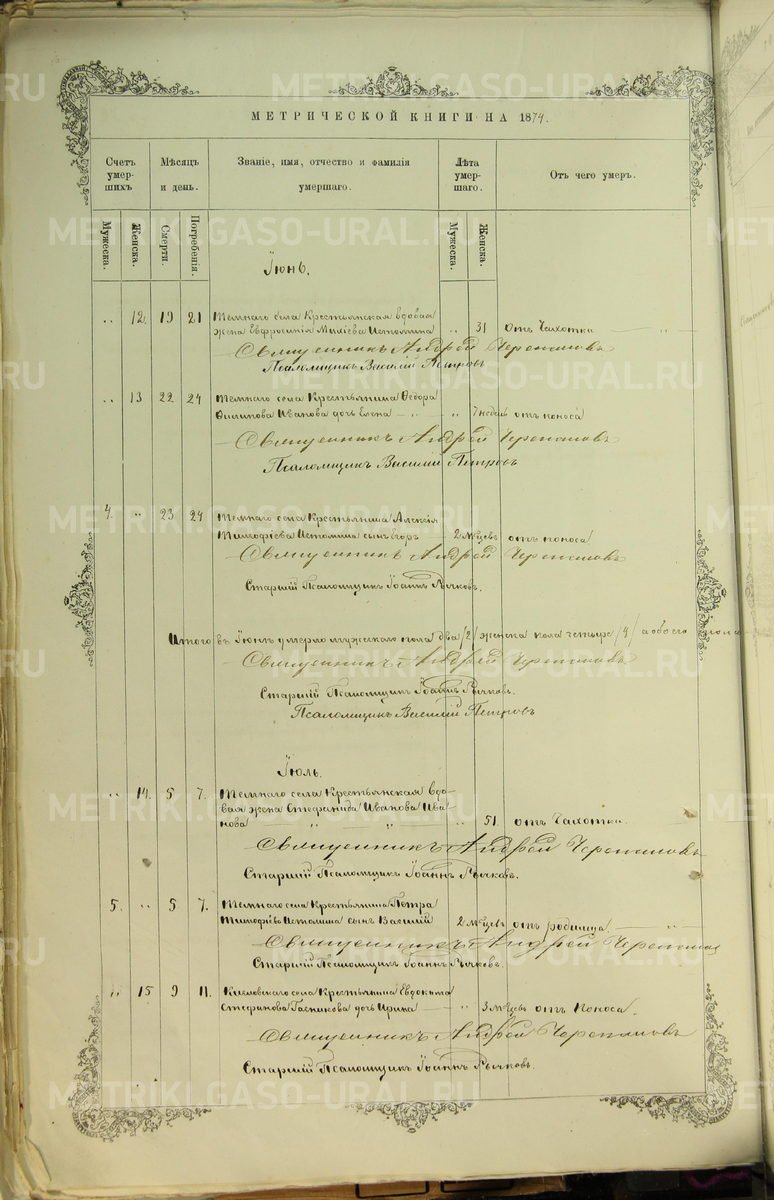 МЕТРИЧЕСКОЙ КНИГИ НА 1874.
Счетъ умер-шихъ
Мѣсяцъ и день.
Званіе, имя, отчество и фамилія умершаго.
Лѣта умер-шаго.
Отъ чего умеръ.
Мужеска.
Женска.
Смерти.
Погребенія.
Мужеска.
Женска.
Іюнь.
" 12. 19 21 Темнаго села Крестьянская вдовая
жена Евфросинія Истомина " 31 Отъ Чахотки "
Священникъ Андрей Черепановъ
Псаломщикъ Василій Петровъ
" 13 22 24 Темнаго села Крестьянина Ѳедора
Филипова Иванова дочь Елена " " 7 недѣль отъ поноса
Священникъ Андрей Черепановъ
Псаломщикъ Василій Петровъ
4. " 23 24 Темнаго села Крестьянина Алексія
Тимофіева Истомина сынъ Егоръ 2 мѣсцвъ отъ поноса
Священникъ Андрей Черепановъ
Старшій Псаломщикъ Іоаннъ Рычковъ.
Итого въ Іюнѣ умерло мужскаго пола два /2/ женска пола четыре /4/ а обоего пола
Священникъ Андрей Черепановъ
Старшій Псаломщикъ Іоаннъ Рычковъ.
Псаломщикъ Василій Петровъ
Іюль.
" 14. 5 7. Темнаго села Крестьянская вдо-
вая жена Стефанида Иванова Ива-
нова " " " 51. отъ Чахотки.
Священникъ Андрей Черепановъ
Старшій Псаломщикъ Іоаннъ Рычковъ.
5. " 5 7. Темнаго села Крестьянина Петра
Тимофіева Истомина сынъ Василій 2 мѣсцвъ отъ родимца "
Священникъ Андрей Черепановъ
Старшій Псаломщикъ Іоаннъ Рычковъ.
" 15 9 11. Кисловскаго села Крестьянина Евдокима
Стефанова дочь Ирина " 3 мѣсцвъ отъ Поноса.
Священникъ Андрей Черепановъ
Старшій Псаломщикъ Іоаннъ Рычковъ.
METRIKI.GASO-URAL.RU